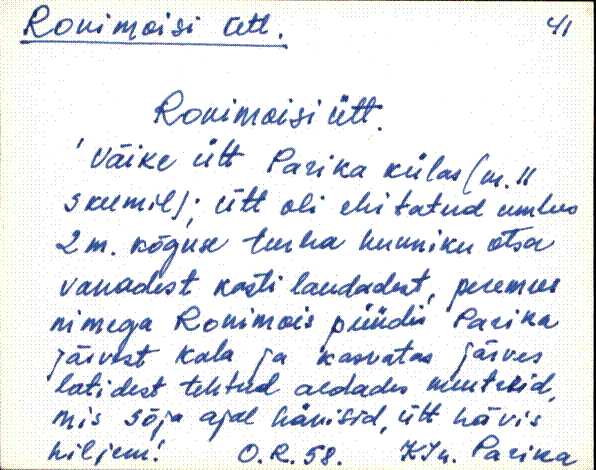 Ronimoisi ütt. 41
Ronimoisi ütt.
'väike ütt Parika külas (m. 11
skeemil); ütt oli ehitatud umbes
2 m. kõguse turba hunniku otsa
vanadest kasti laudadest, peremees
nimega Ronimois püüdis Parika
järvest kala ja kasvatas järves
latidest tehtud aedades
mis sõja ajal hävisid, ütt hävis
hiljem! O.R. 58. K.Jn. Parika